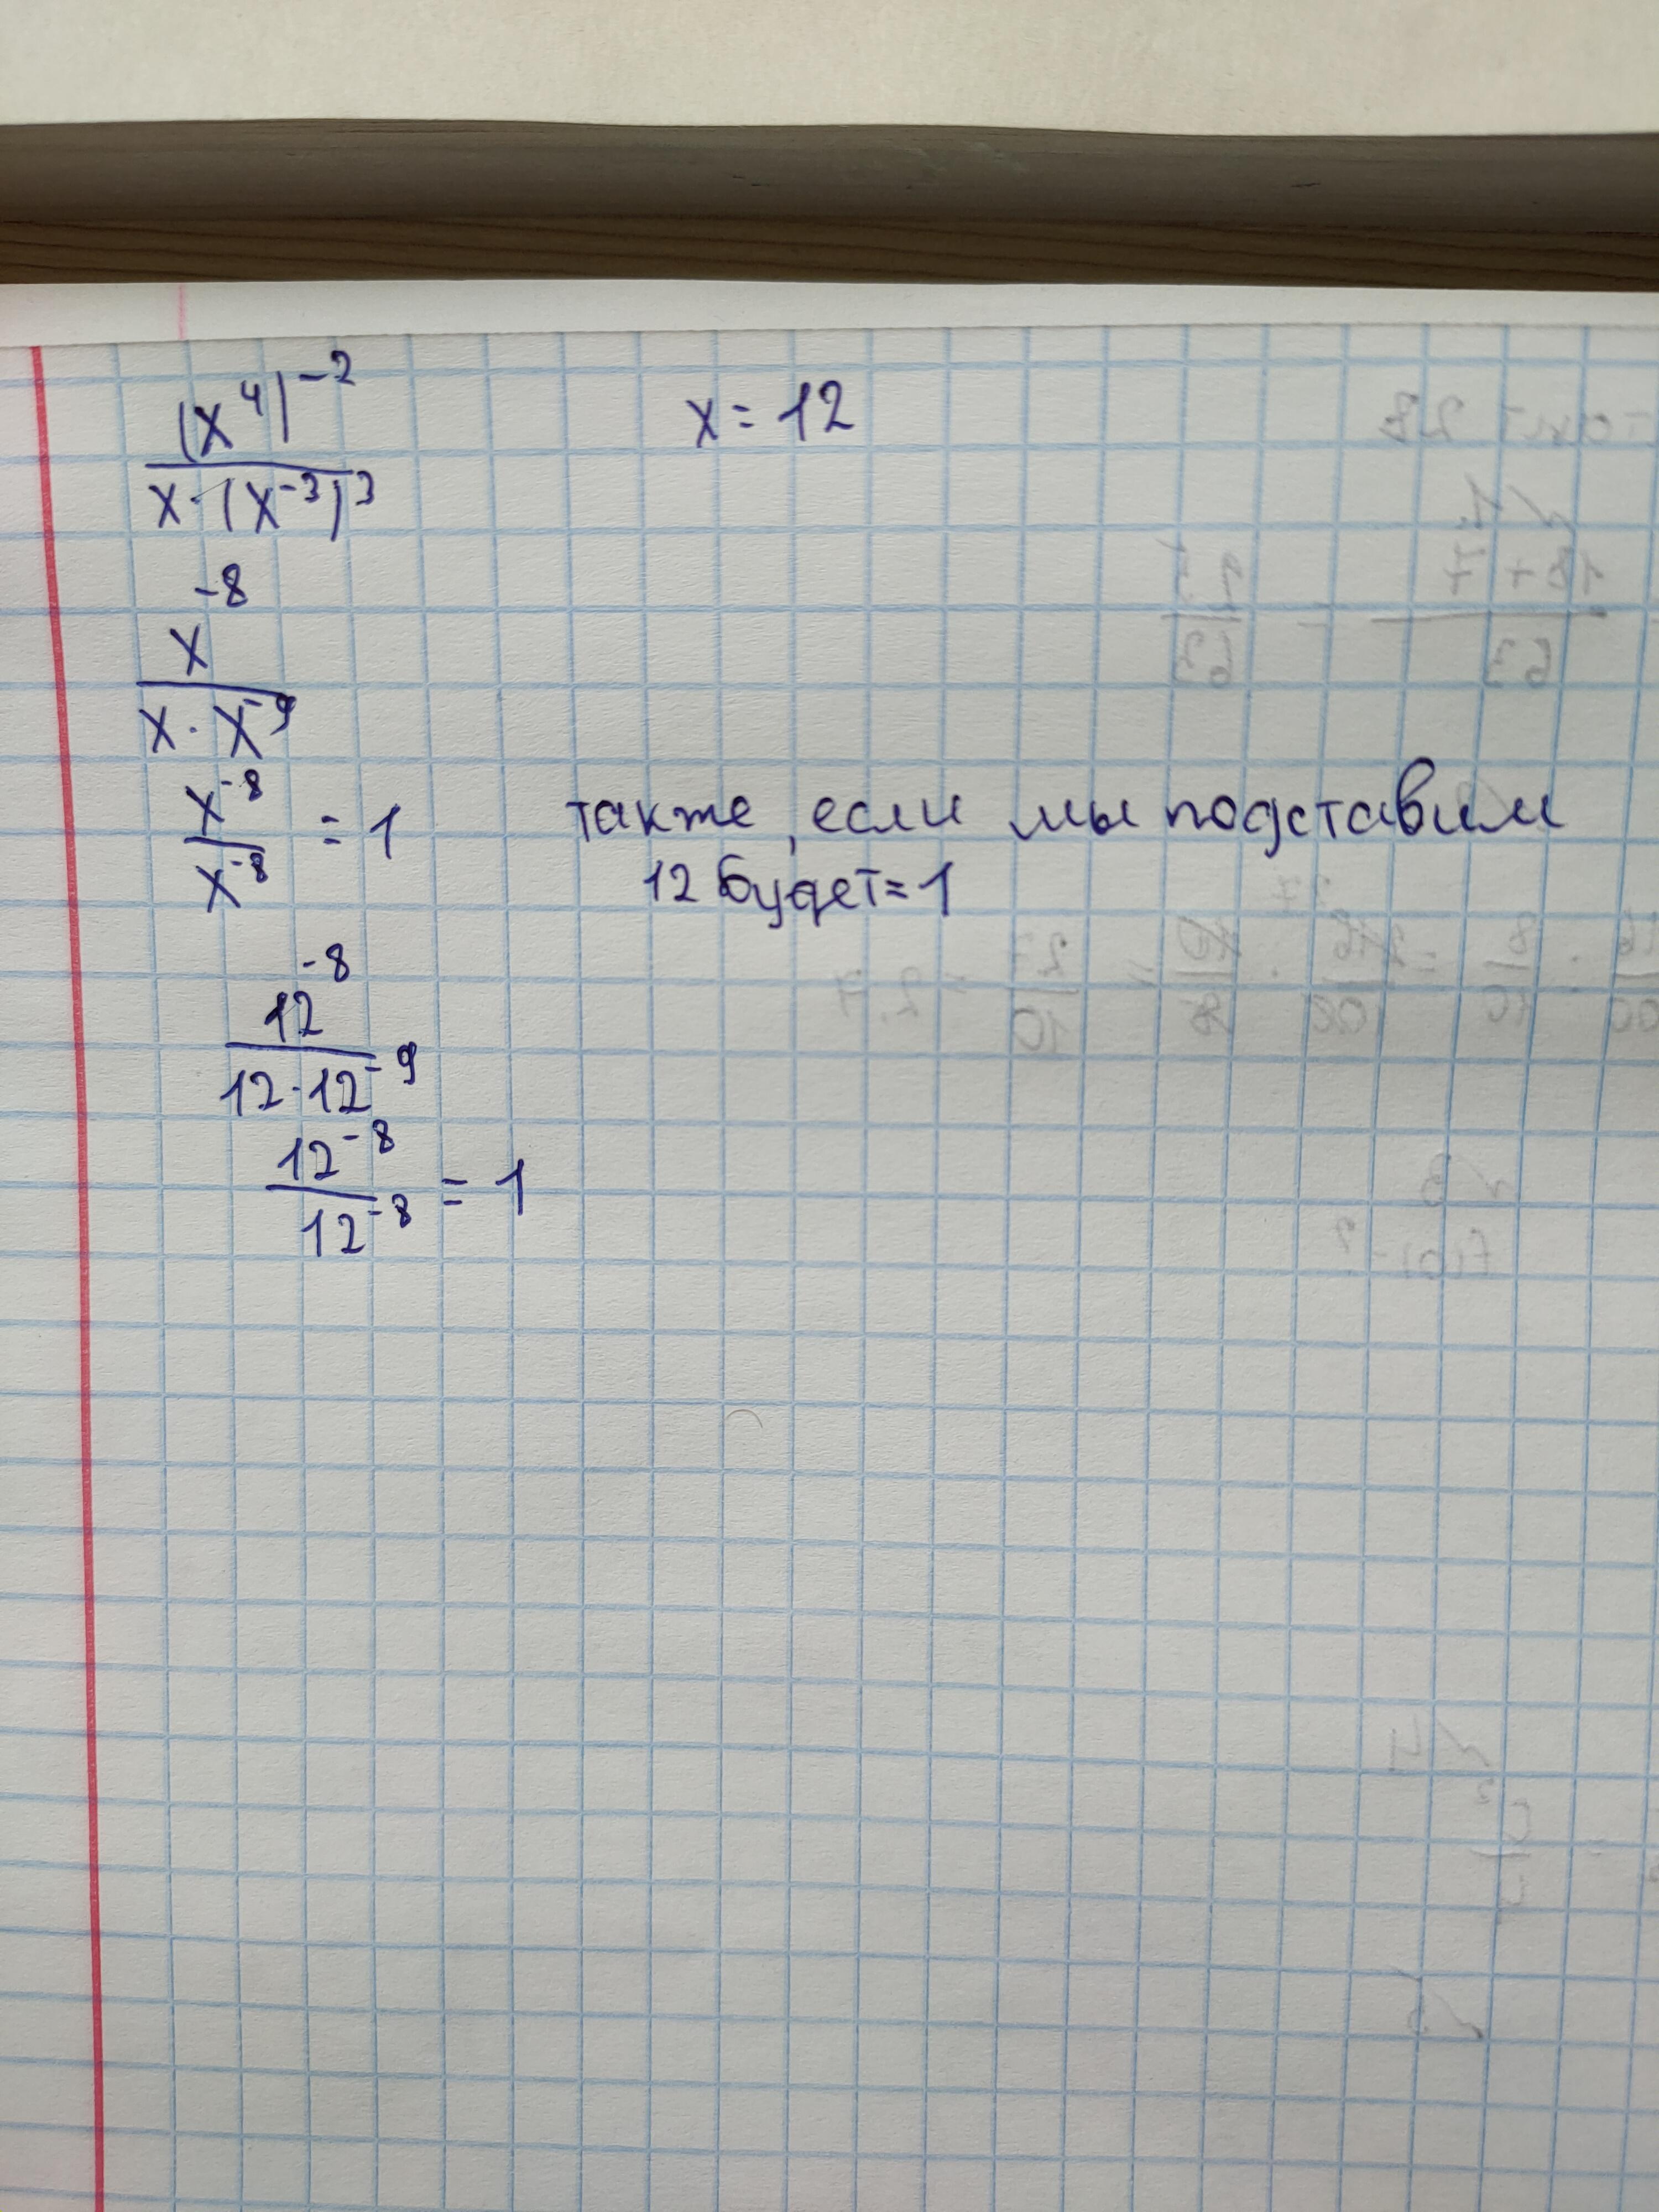 (x⁴)⁻² x = 12
x · (x⁻³)³
x⁻⁸
x · x⁻⁹
x⁻⁸
x⁻⁸ = 1 также, если мы подставим
12 будет = 1
12⁻⁸
12 · 12⁻⁹
12⁻⁸
12⁻⁸ = 1